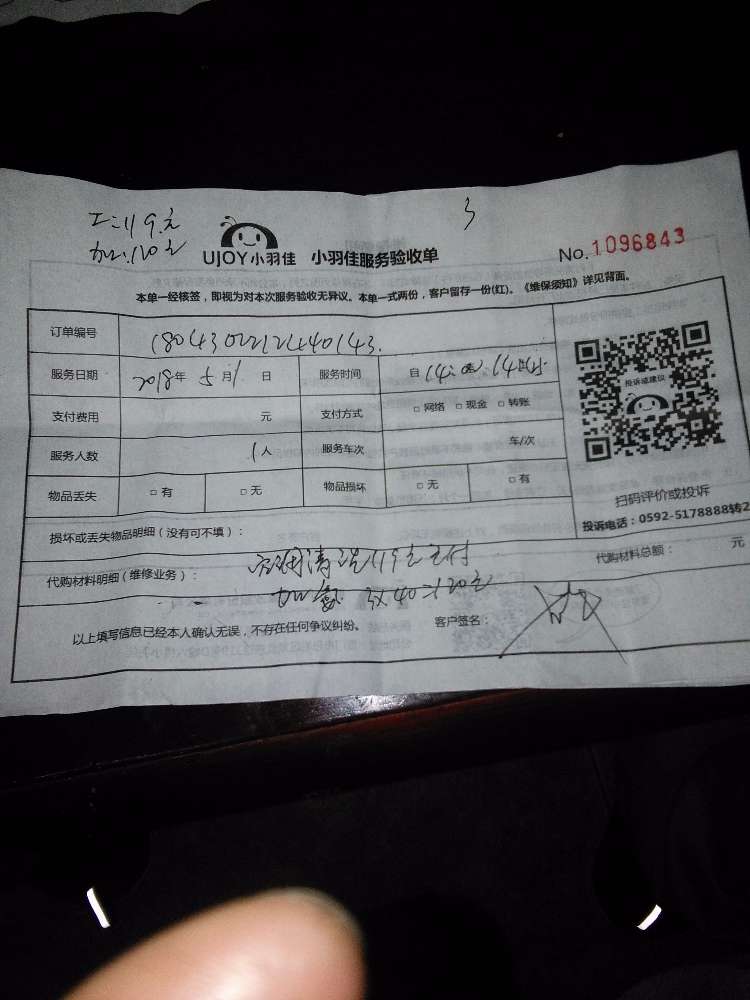 工:119.元
3
加:120元
UJOY小羽佳 小羽佳服务验收单
No.1096843
本单一经核签，即视为对本次服务验收无异议。本单一式两份，客户留存一份(红)。《维保须知》详见背面。
订单编号
服务日期 2018年 5月1日 服务时间 自
支付费用 元 支付方式 □ 网络 □ 现金 □ 转账
服务人数 1人 服务车次 车/次
物品丢失 □ 有 □ 无 物品损坏 □ 无 □ 有
投诉或建议
扫码评价或投诉
投诉电话：0592-5178888转2
损坏或丢失物品明细（没有可不填）：
代购材料明细（维修业务）： 清洗119元 支付 代购材料总额： 元
加氟 3×40=120元
以上填写信息已经本人确认无误，不存在任何争议纠纷。 客户签名：